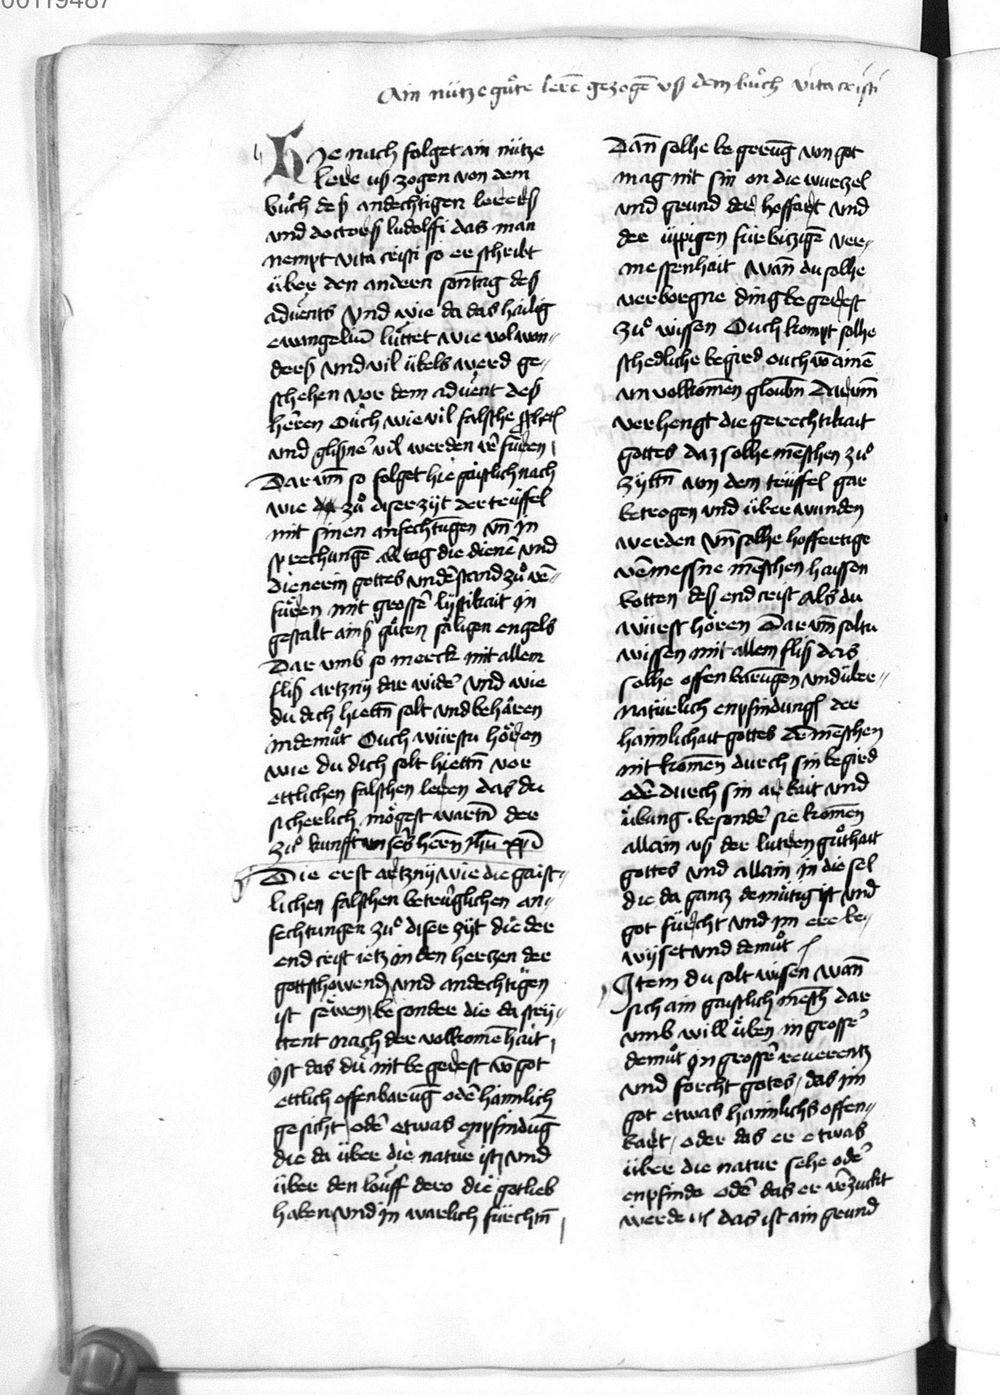 00119487
Ain nütze gůte lere gezogē vß dem bůch vita cristi
Hie nach folget ain nütze
lere uß zogen von dem
bůch deß andechtigen lererß
vnd doctorß ludolffi das man
nempt vita cristi so er schribt
über den andern sontag deß
advents Vnd wie da das hailig
ewangeliū lüttet wie vol won-
derß vnd vil übels werd ge-
schehen vor dem advent deß
herren Ouch wie vil falsche
vnd glißner vil werden v̄ füren
Dar vm̄ so folget hie gaistlich nach
wie zů diser zijt der teüffel
mit sinen anfechtungen vn̄ in
sprechungē all tag die dienē vnd
dienerin gottes vnderstand zů ver-
fůren mit grosser lystikait in
gestalt ainß gůten säligen engels
Dar vmb so merck mit allem
fliß artznij dar wider vnd wie
du dich hieltn̄ solt vnd behären
in demůt Ouch würstu hören
wie du dich solt hieltn̄ vor
ettlichen falschen leren das du
sicherlich mögest wartn̄ der
zů kunfft vnsers herrn jhū xp̄i
Die erst artznij wie die gaist-
lichen falschen betrüglichen an-
fechtungen zů diser zijt die der
end crist ietz in den hertzen der
gottschowend vnd andechtigen
ist sewen besonder die da strij-
ttent nach der volkomēhait
Ist das du nit begerest vō got
ettlich offenbarūg oder haimlich
gesicht oder etwas enpfindūg
die da über die natur ist vnd
über den louff dero die gotlieb
haben vnd in warlich fürchtn̄
Dan̄ solhe begerūg von got
mag nit sin on die wurtzel
vnd grund der hoffart vnd
der üppigen fürbitzigē ver-
messenhait Wan̄ du solhe
verborgne ding begerest
zů wissen Ouch kompt solhe
schedliche begird ouch vō ainē
vn volkomen gloubn̄ Darvm̄
verhengt die gerechtikait
gottes daz solhe mēschen zů
zijttn̄ von dem teüffel gar
betrogen vnd überwunden
werden Vn̄ solhe hoffertige
vermessne menschen haissen
botten deß endcrist als du
würst hören Darvm̄ soltu
wissen mit allem fliß das
solhe offenbarūgen vnd über-
natürlich enpfindung der
haimlichait gottes dē mēschen
nit komen durch sin begird
oder durch sin arbait vnd
übung besonder sie komen
allain vß der lutren gůthait
gottes vnd allain in die sel
die da gantz demütig ist vnd
got fürcht vnd im ere be-
wijset vnd demůt
Item du solt wisen wan̄
sich ain gaistlich mēsch dar
vmb will üben in grosser
demůt in grosser reverentz
vnd forcht gotes das im
got etwas haimlichs offen-
bart oder das er etwas
über die natur sehe oder
enpfinde oder das er v̄zuckt
werde das ist ain grund